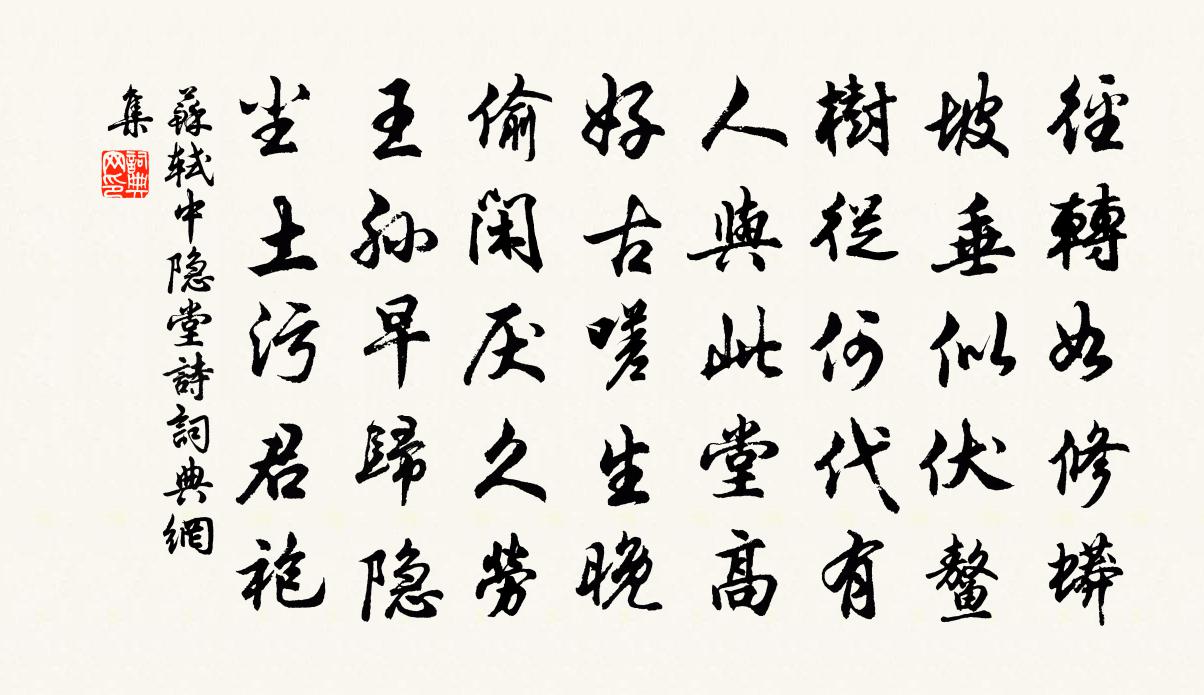 徑轉如修蟒
坡垂似伏鰲
樹從何代有
人與此堂高
好古嗟生晚
偷閑厌久勞
王孫早歸隐
尘土污君袍
蘇轼中隐堂詩詞典網
集
詞典网印